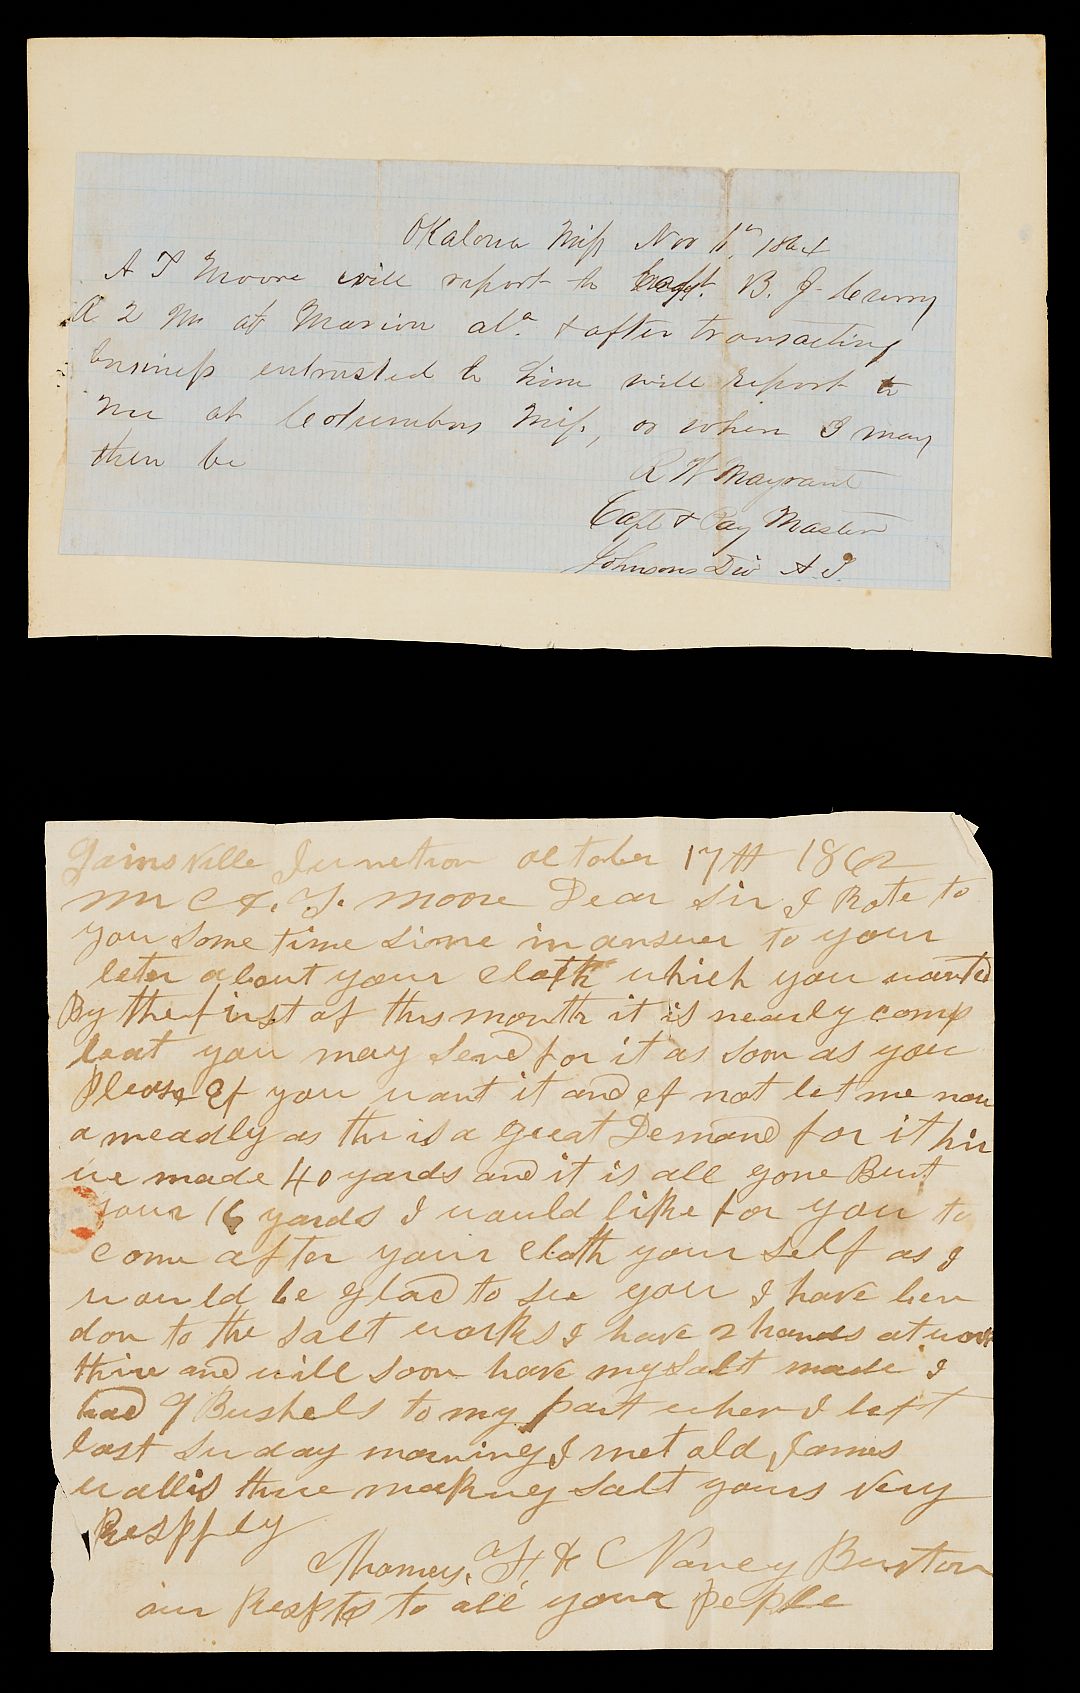 Okalona Miss Nov 1st, 1864
A T Moore will report to Capt. B. J. Curry
A 2 M at Marion ala & after transacting
business entrusted to him will report to
me at Columbus Miss, or where I may
then be
R W Mayrant
Capt & Pay Master
Johnsons Div A. T.
Gainsville Junction october 17th 1862
Mr C A. T. Moore Dear Sir I Rote to
you some time since in answer to your
leter about your cloth which you wanted
By the first of this month it is nearly comp
leat you may send for it as soon as you
Please ef you want it and ef not let me now
ameadly as the is a great Demand for it hir
we made 40 yards and it is all gone But
your 16 yards I would like for you to
come after your cloth your self as I
would be glad to see you I have ben
don to the salt works I have 2 hands at work
thire and will soon have my salt made I
had 9 Bushels to my part when I left
last sunday morning I met old James
wallis thire making salt yours very
Respffly
Thomas. H & C Nancy Burton
our Respts to all your peple